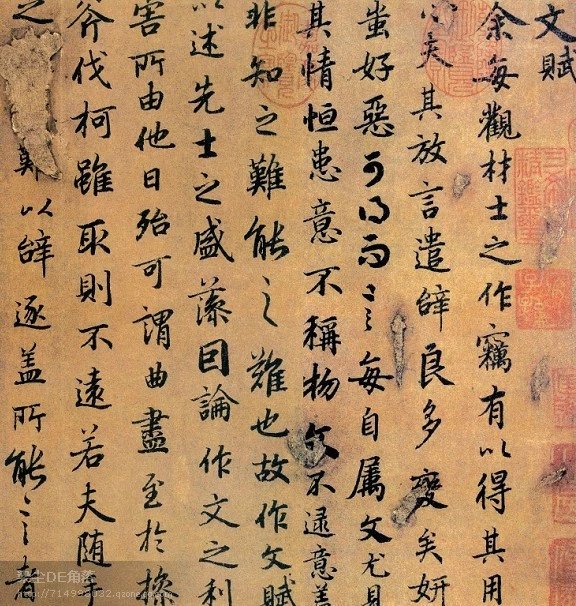 文賦
余每觀材士之作竊有以得其用
心夫其放言遣辭良多變矣妍
蚩好惡可得而言每自属文尤見
其情恒患意不稱物文不逮意盖
非知之難能之難也故作文賦
以述先士之盛藻因論作文之利
害所由他日殆可謂曲盡至於操
斧伐柯雖取則不遠若夫随手
之難以辭逐盖所能言者